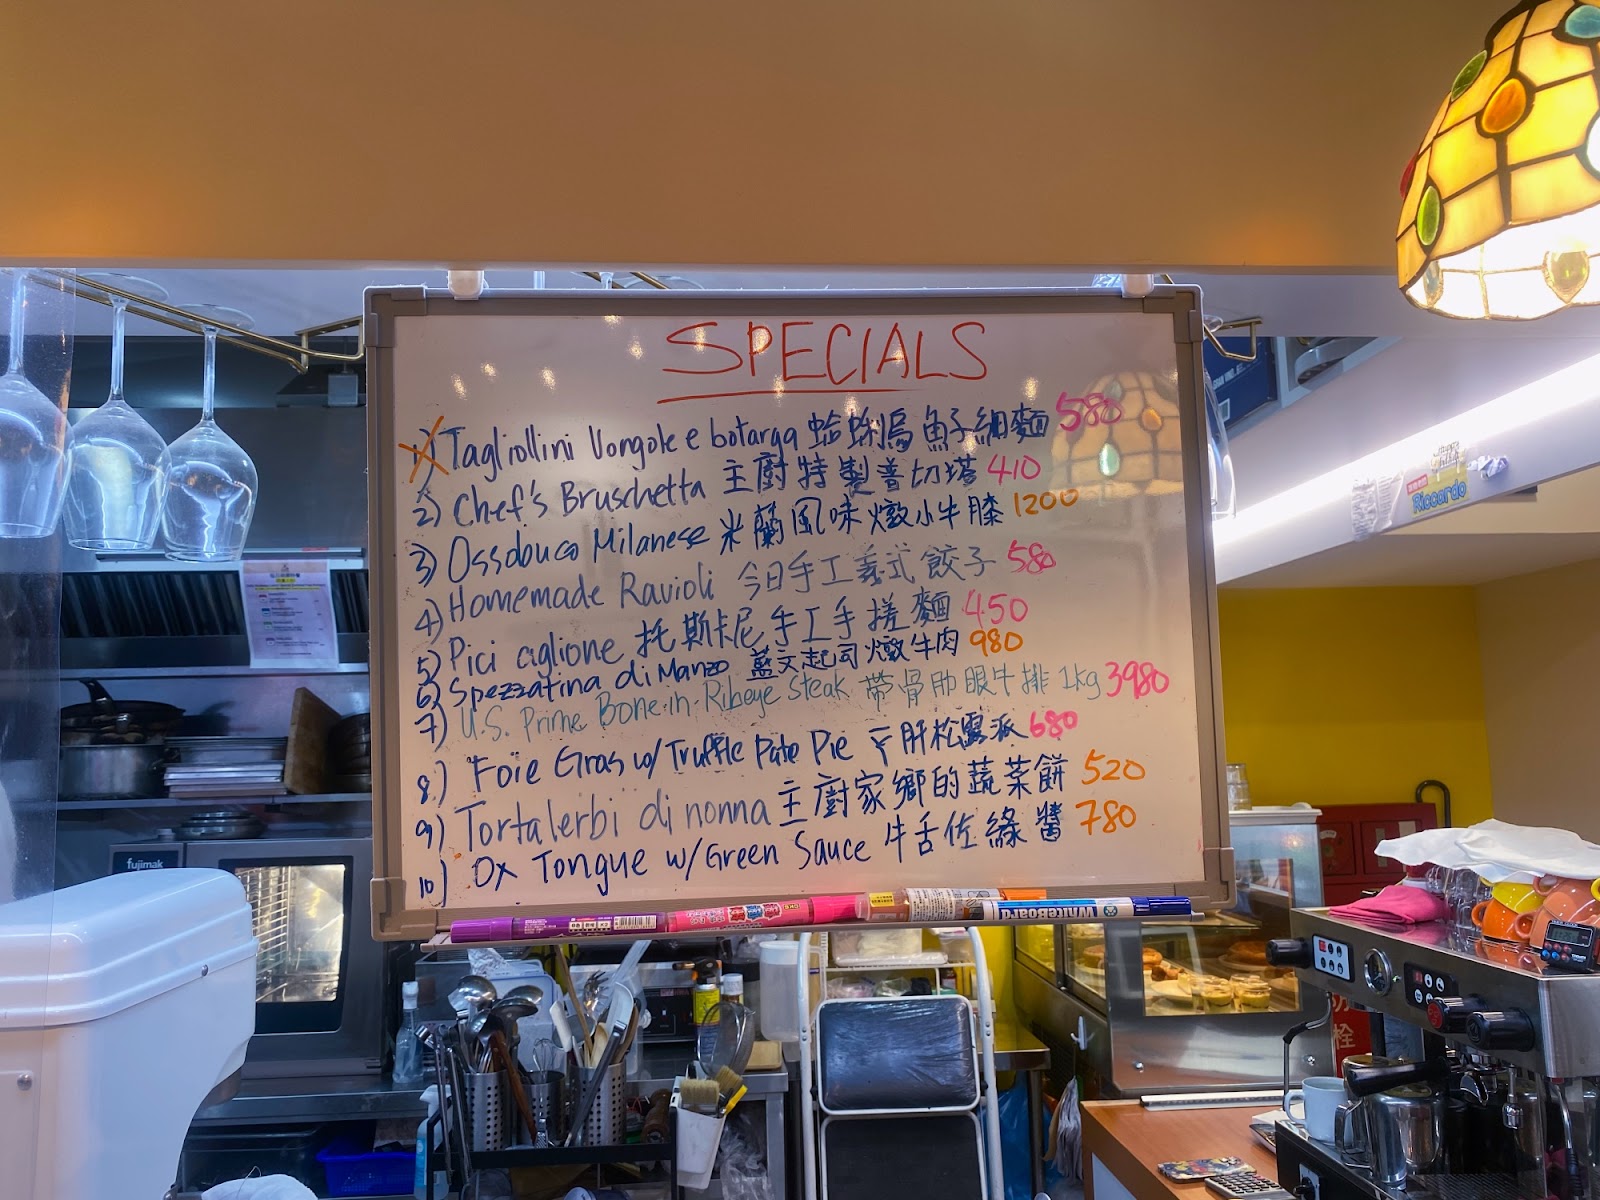 SPECIALS
1) Tagliollini Vongole e botarga 蛤蜊烏魚子細麵 580
2) Chef's Bruschetta 主廚特製普切塔 410
3) Ossobuco Milanese 米蘭風味燉小牛膝 1200
4) Homemade Ravioli 今日手工義式餃子 580
5) Pici aglione 托斯卡尼手工手搓麵 450
6) Spezzatina di Manzo 藍文起司燉牛肉 980
7) U.S. Prime Bone-in-Ribeye Steak 帶骨肋眼牛排 1kg 3980
8) Foie Gras w/Truffle Pate Pie 肝松露派 680
9) Tortalerbi di nonna 主廚家鄉的蔬菜餅 520
10) Ox Tongue w/Green Sauce 牛舌佐綠醬 780
fujimak
Riccardo
WHITEBOARD